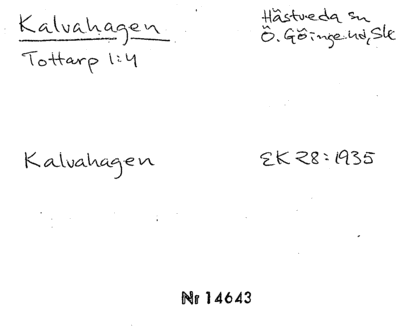 Kalvahagen
Tottarp 1:4
Hästveda sn
Ö. Göinge hd, Sk
Kalvahagen
EK 28:1935
Nr 14643